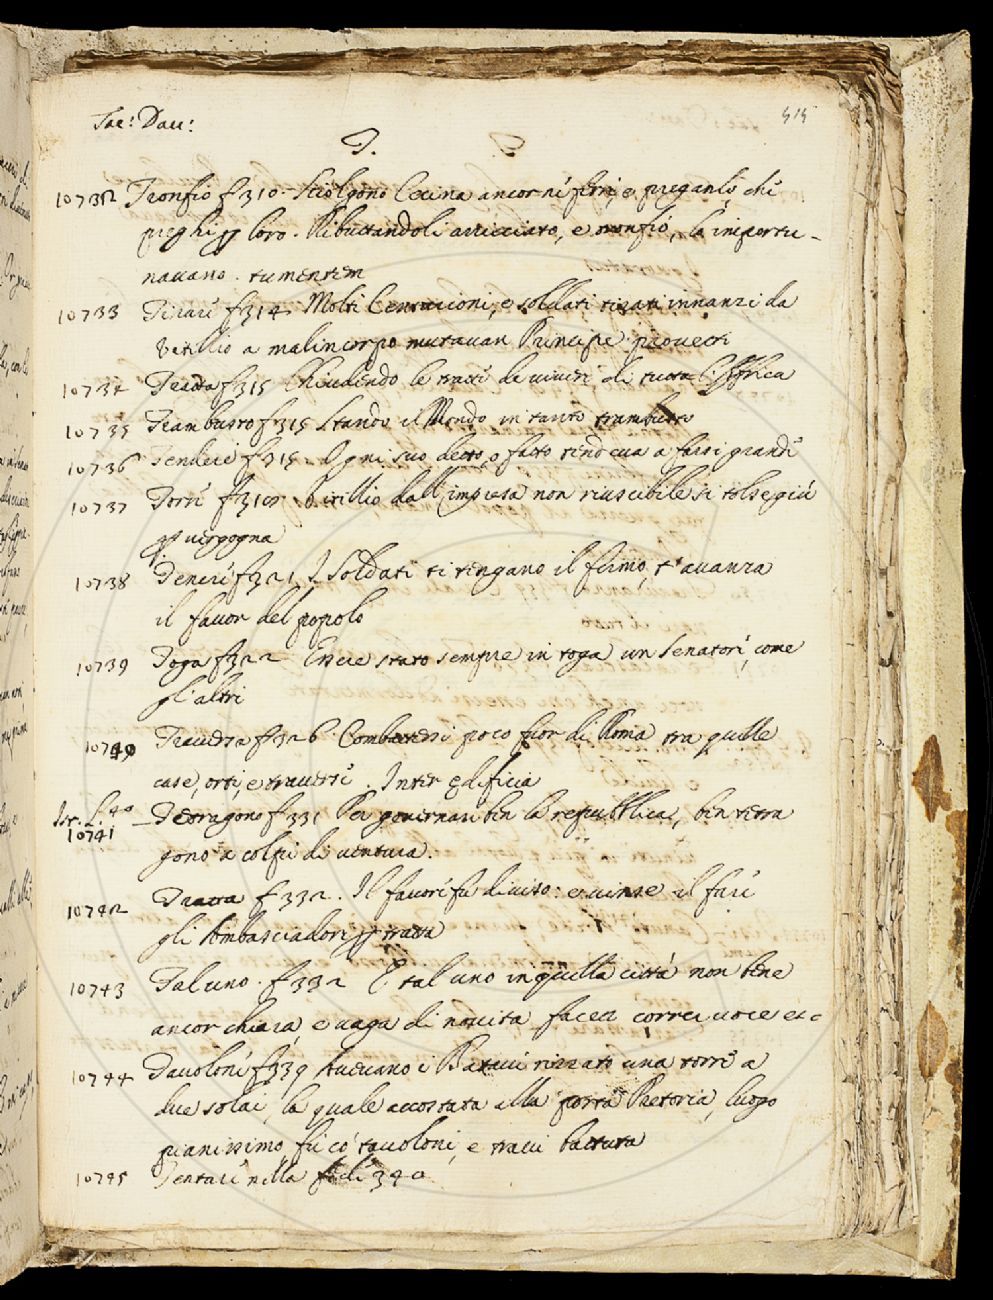 Tac: Dau:
515
T.
10732 Tronfio f 310. Sciolgono Cecina ancor ni ferri, e preganlo, chi
preghi p loro. Ributtandoli arricciato, e tronfio, lo importu-
nauano. tumentem
10733 Tirare f 314 Molti Centurioni, e soldati tirati innanzi da
Vitillio a malincorpo mutauan Principe. prouecti
10734 Tratta f 315 Chiudendo le tratte de uiueri di tutta l'Affrica
10735 Trambusto f 315 Stando il Mondo in tanto trambusto
10736 Tendere f 315. Ogni suo detto, o fatto tendeua a farsi grande
10737 Torre f 319. Vitillio dall'impresa non riuscibile si tolse giù
p uergogna
10738 Tenere f 321. I Soldati ti tengano il fermo, t'auanza
il fauor del popolo
10739 Toga f 322 Essere stato sempre in toga un Senatore, come
gl'altri
10740 Trauersa f 326. Combattesi poco fuor di Roma tra quelle
case, orti, e trauerse. Inter ędificia
Ter. l. 40
10741 Tetragono f 331 Per gouernare ben la republica, ben tetra
gono a colpi di uentura.
10742 Tratta f 332. Il fauore fu diuiso: e uinse il fare
gli Ambasciadori p tratta
10743 Taluno. f 332 E taluno in quella città non bene
ancor chiara, e uaga di nouità facea correr uoce etc
10744 Tauolone f 339 Aueuano i Bataui rizzato una torre a
due solai, la quale accostata alla porta Pretoria, luogo
pianissimo, fu cō tauoloni, e traui battuta
10745 Tentare nella fede 340